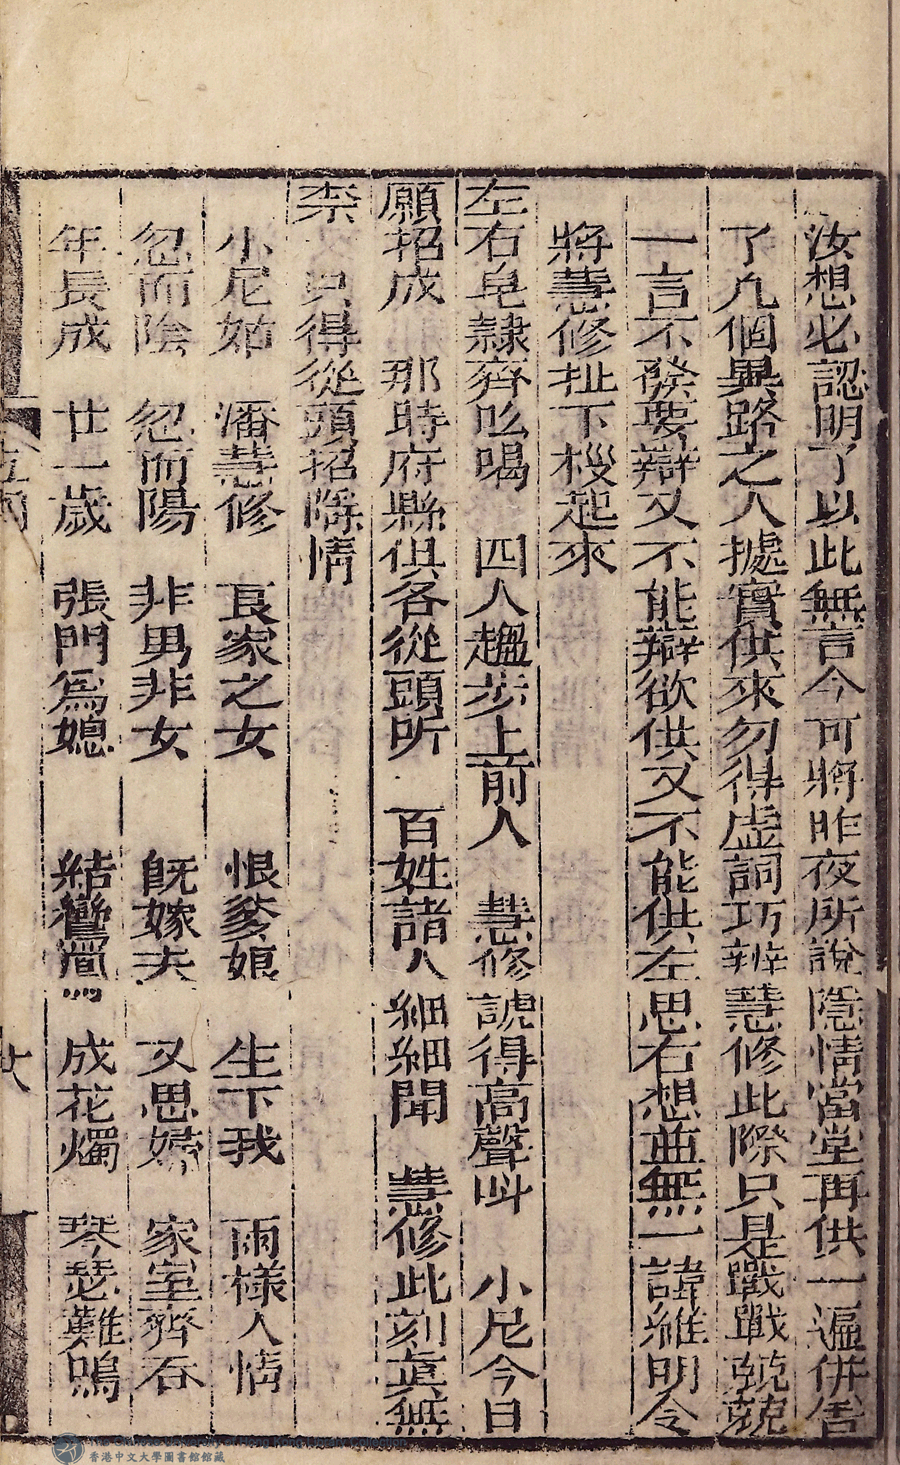 汝想必認明了以此無言今可將昨夜所說隱情當堂再供一遍併舍
了几個異路之人據實供來勿得虛詞巧辨慧修此際只是戰戰兢兢
一言不發要辯又不能辯欲供又不能供左思右想並無一諱維明令
將慧修扯下桚起來
左右皂隸齊吆喝 四人趨步上前人 慧修諕得高聲呌 小尼今日
願招成 那時府縣俱各從頭听 百姓諸人細細聞 慧修此刻真無
柰 只得從頭招隱情
小尼姑 潘慧修 良家之女 恨爹娘 生下我 兩樣人情
忽而陰 忽而陽 非男非女 既嫁夫 又思婦 家室齊吞
年長成 廿一歲 張門爲媳 結鸞 成花燭 琴瑟難鳴
香港中文大學圖書館館藏